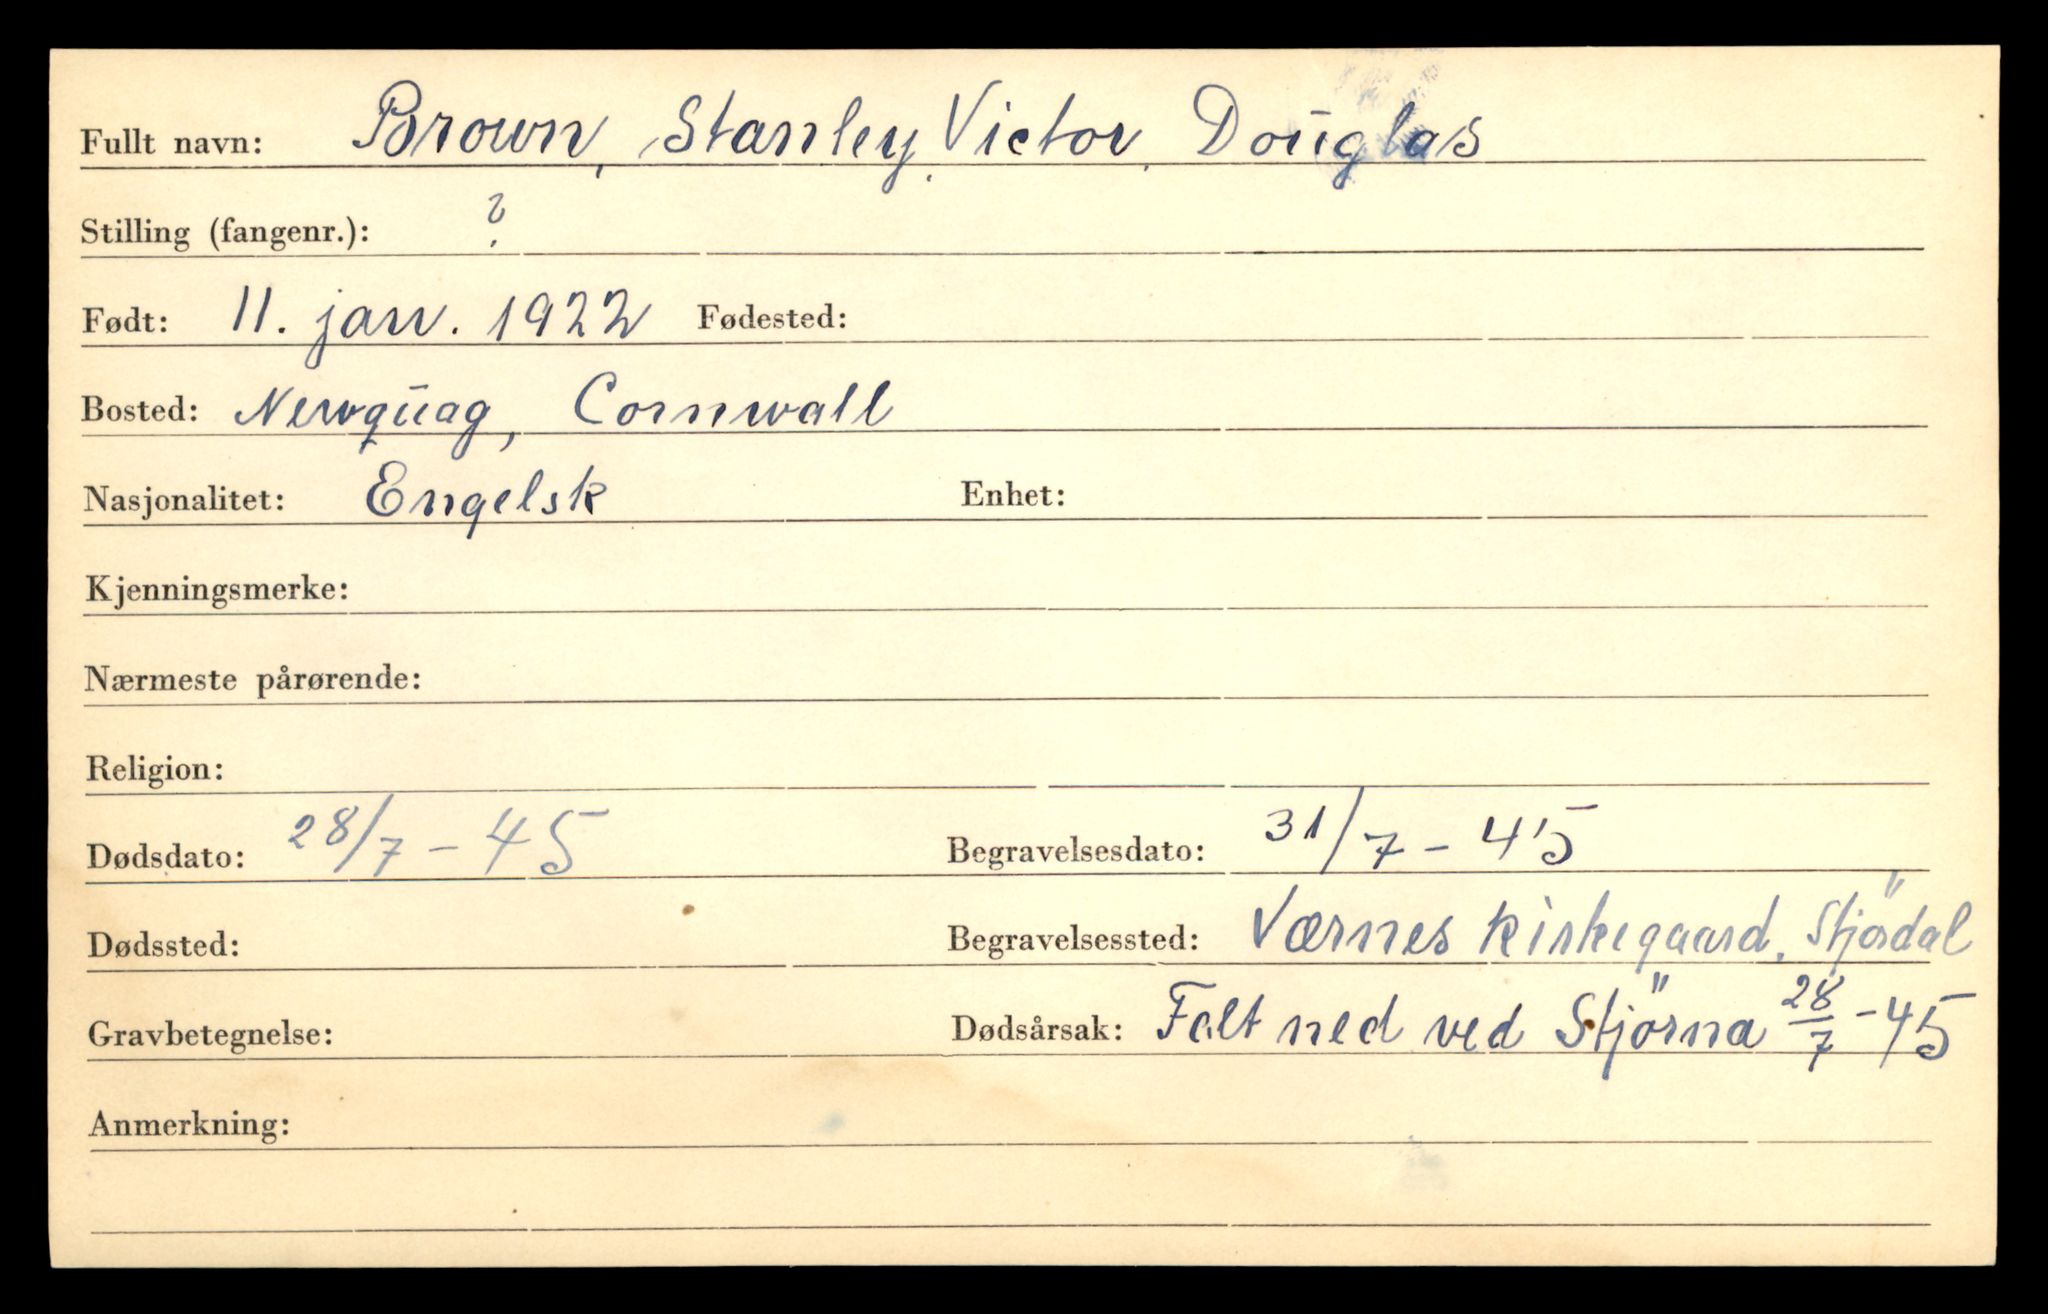 Fullt navn: Brown, Stanley, Victor, Douglas
Stilling (fangenr.): ?
Født: 11. jan. 1922 Fødested:
Bosted: Newquag, Cornwall
Nasjonalitet: Engelsk Enhet:
Kjenningsmerke:
Nærmeste pårørende:
Religion:
Dødsdato: 28/7 - 45 Begravelsesdato: 31/7 - 45
Dødssted: Begravelsessted: Værnes kirkegaard, Stjördal
Gravbetegnelse: Dødsårsak: Falt ned ved Stjörna 28/7 - 45
Anmerkning: